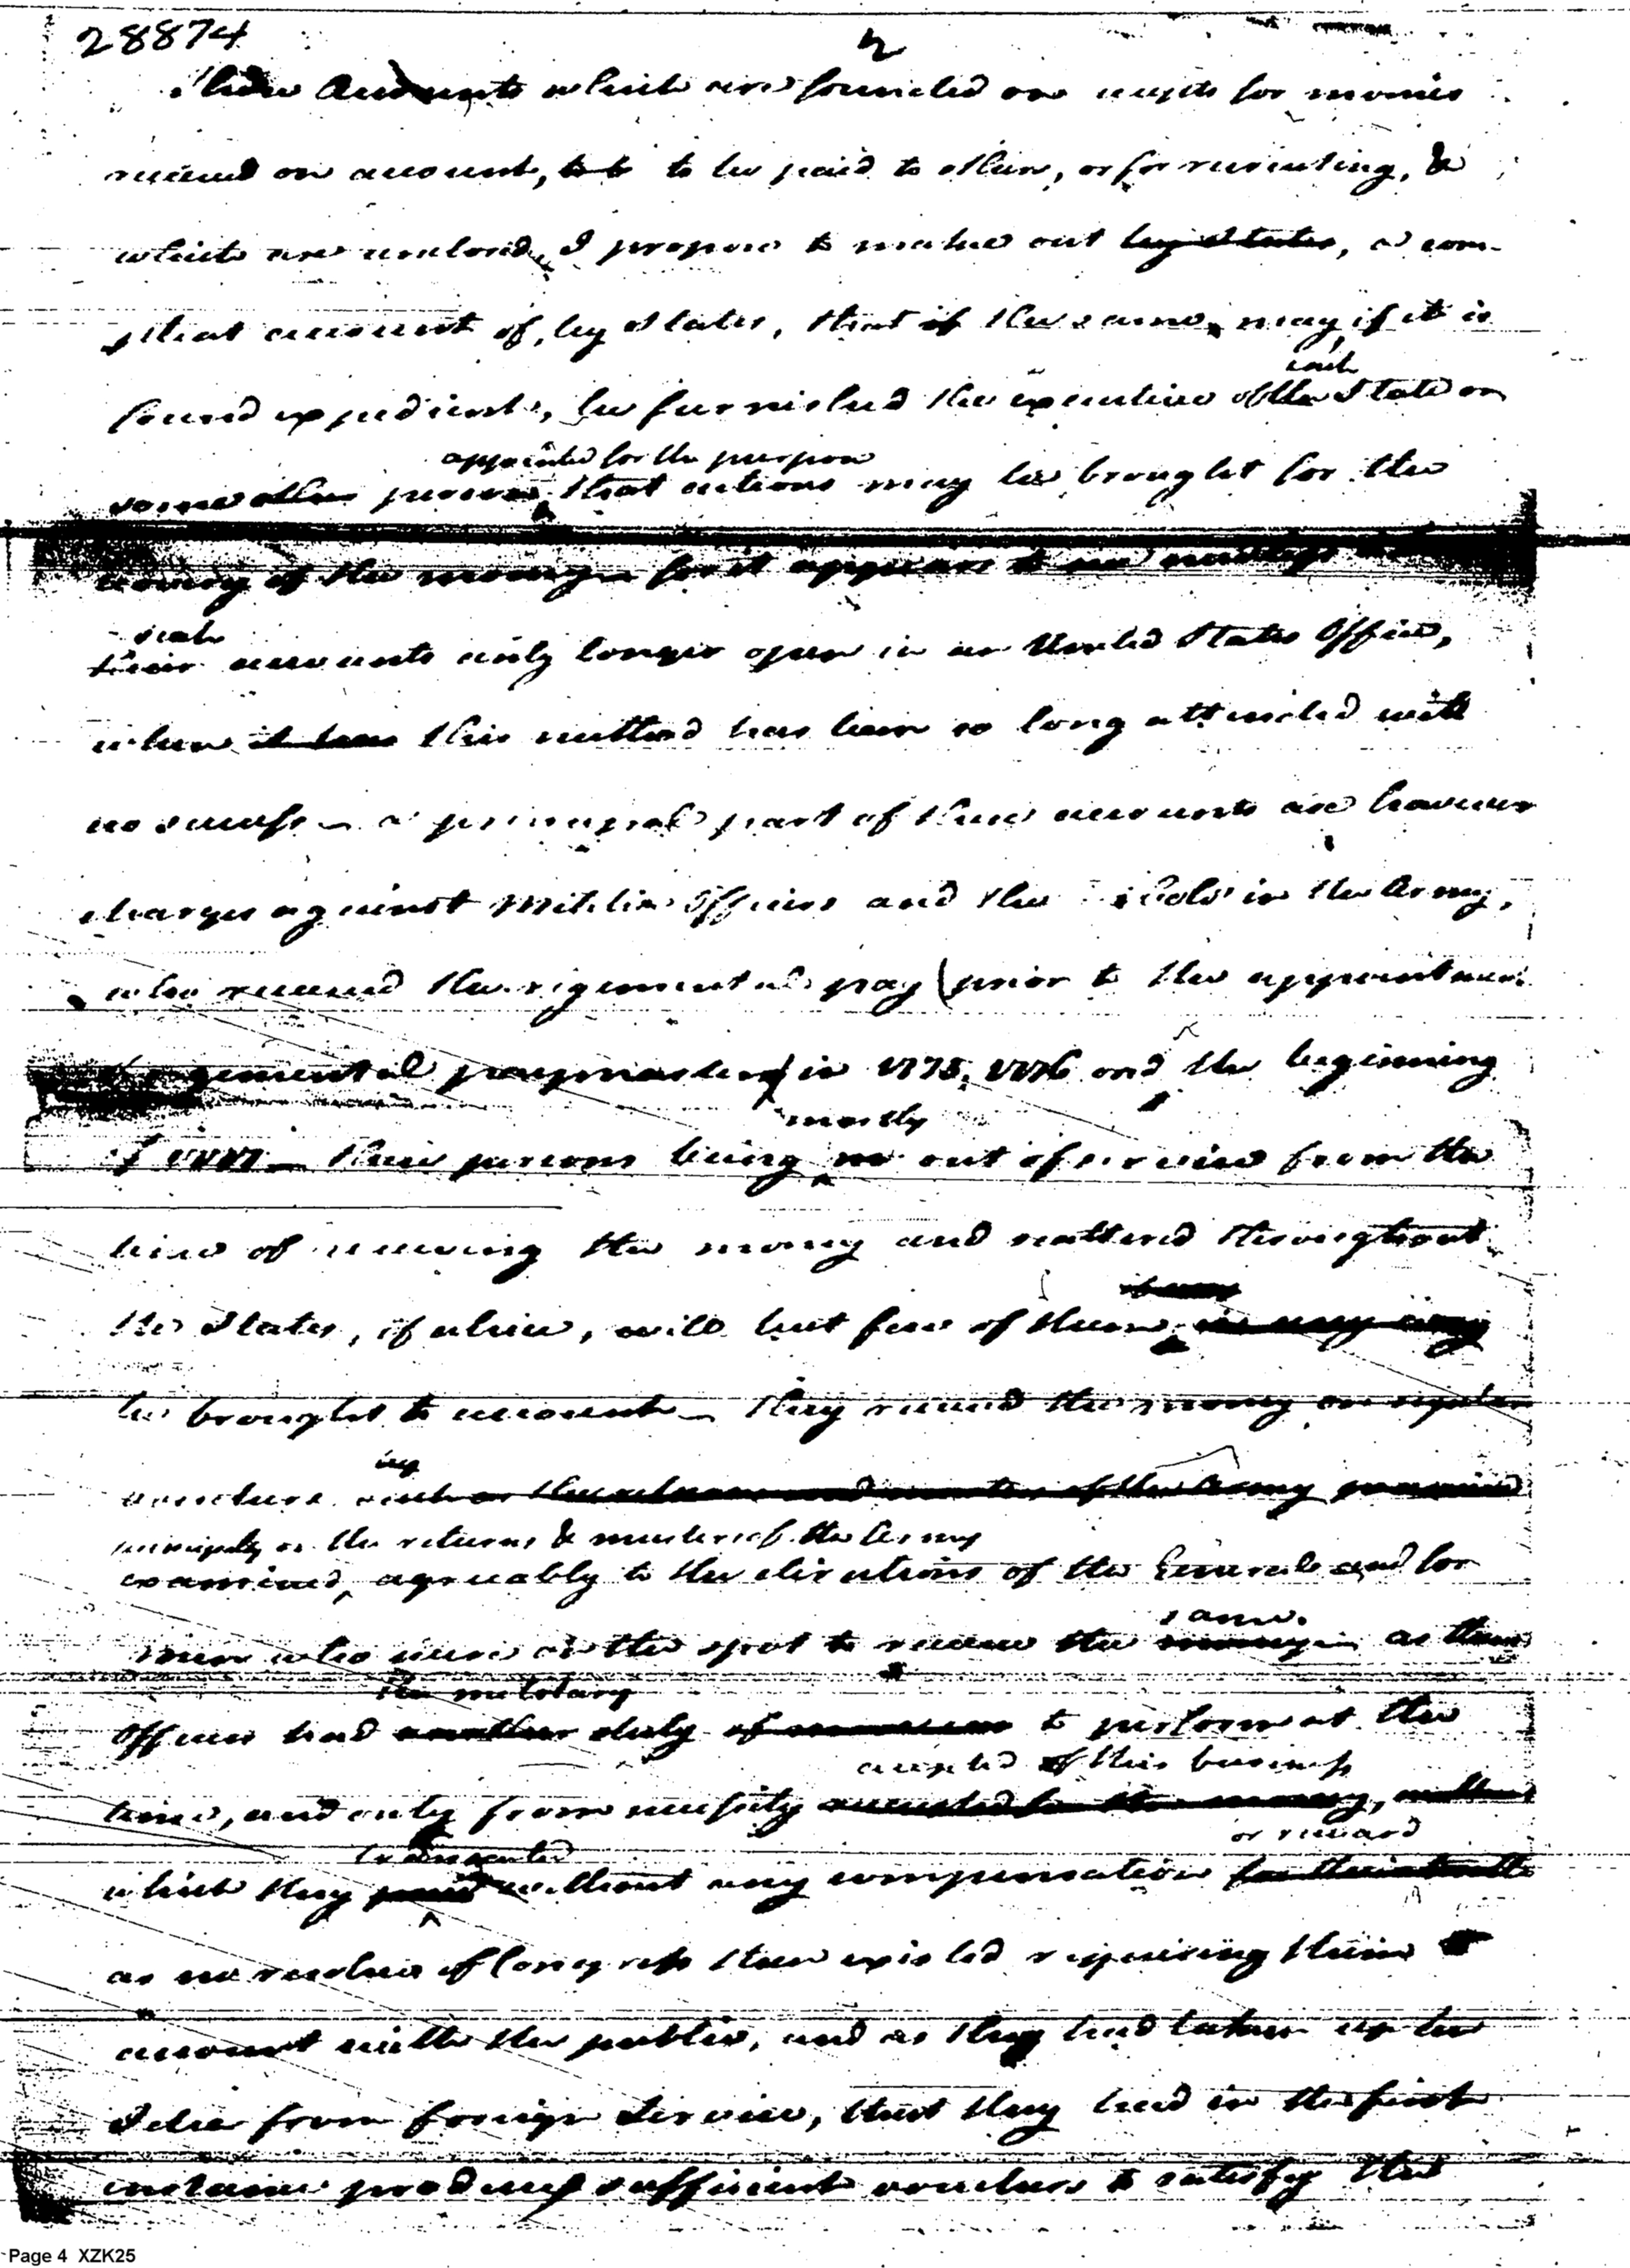 28874
2
These Accounts which are founded on receipts for monies
received on account, to b to be paid to others, or for recruiting, &
which are unclosed, I propose to make out by States, a com-
pleat account of, by States, that if the same may, if it is
each
found expedient, be furnished the executive of the State or
appointed for the purpose
some other person, that actions may be brought for the
recovery of the money for it appears to me
such
their accounts any longer open in an United States Office,
when it has this method has been so long attended with
no success a principal part of these accounts are however
charges against Militia Officers and the Cols in the Army,
who received the regemental pay (prior to the appointment
regemental paymasters) in 1775, 1776 and the beginning
mostly
of 1777 these persons being out of service from the
time of receiving the money and scattered throughout
the States, if alive, will but few of them in any way
be brought to account They received the money on regular
ing
vouchers such as the returns and muster of the Army
principally on the returns & musters of the Army
examined, agreeably to the directions of the Generals and for
same
men who were on the spot to receive the money as these
the military
Officers had another duty to perform at the
accepted of this business
time, and only from necessity accepted for the money,
transacted
or reward
which they paid without any compensation for their
as no resolve of Congress then existed requiring them
to
account with the public, and as they had taken up the
Idea from foreign Service, that they had in the first
instance produced sufficient vouchers to satisfy the
Page 4 XZK25